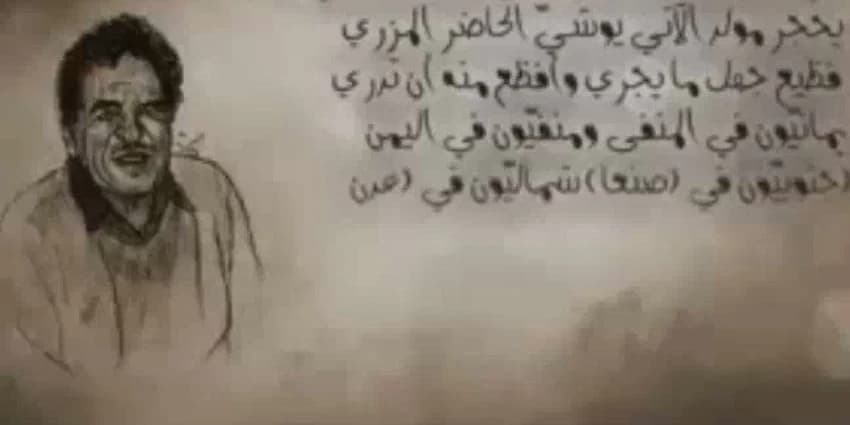 يحجر مولد الآتي يوشيّ الحاضر المزري
فظيع جهل ما يجري وأفظع منه أن تدري
يمانيّون في المنفى ومنفيّون في اليمن
(جنوبيّون في (صنعا) شماليّون في (عدن